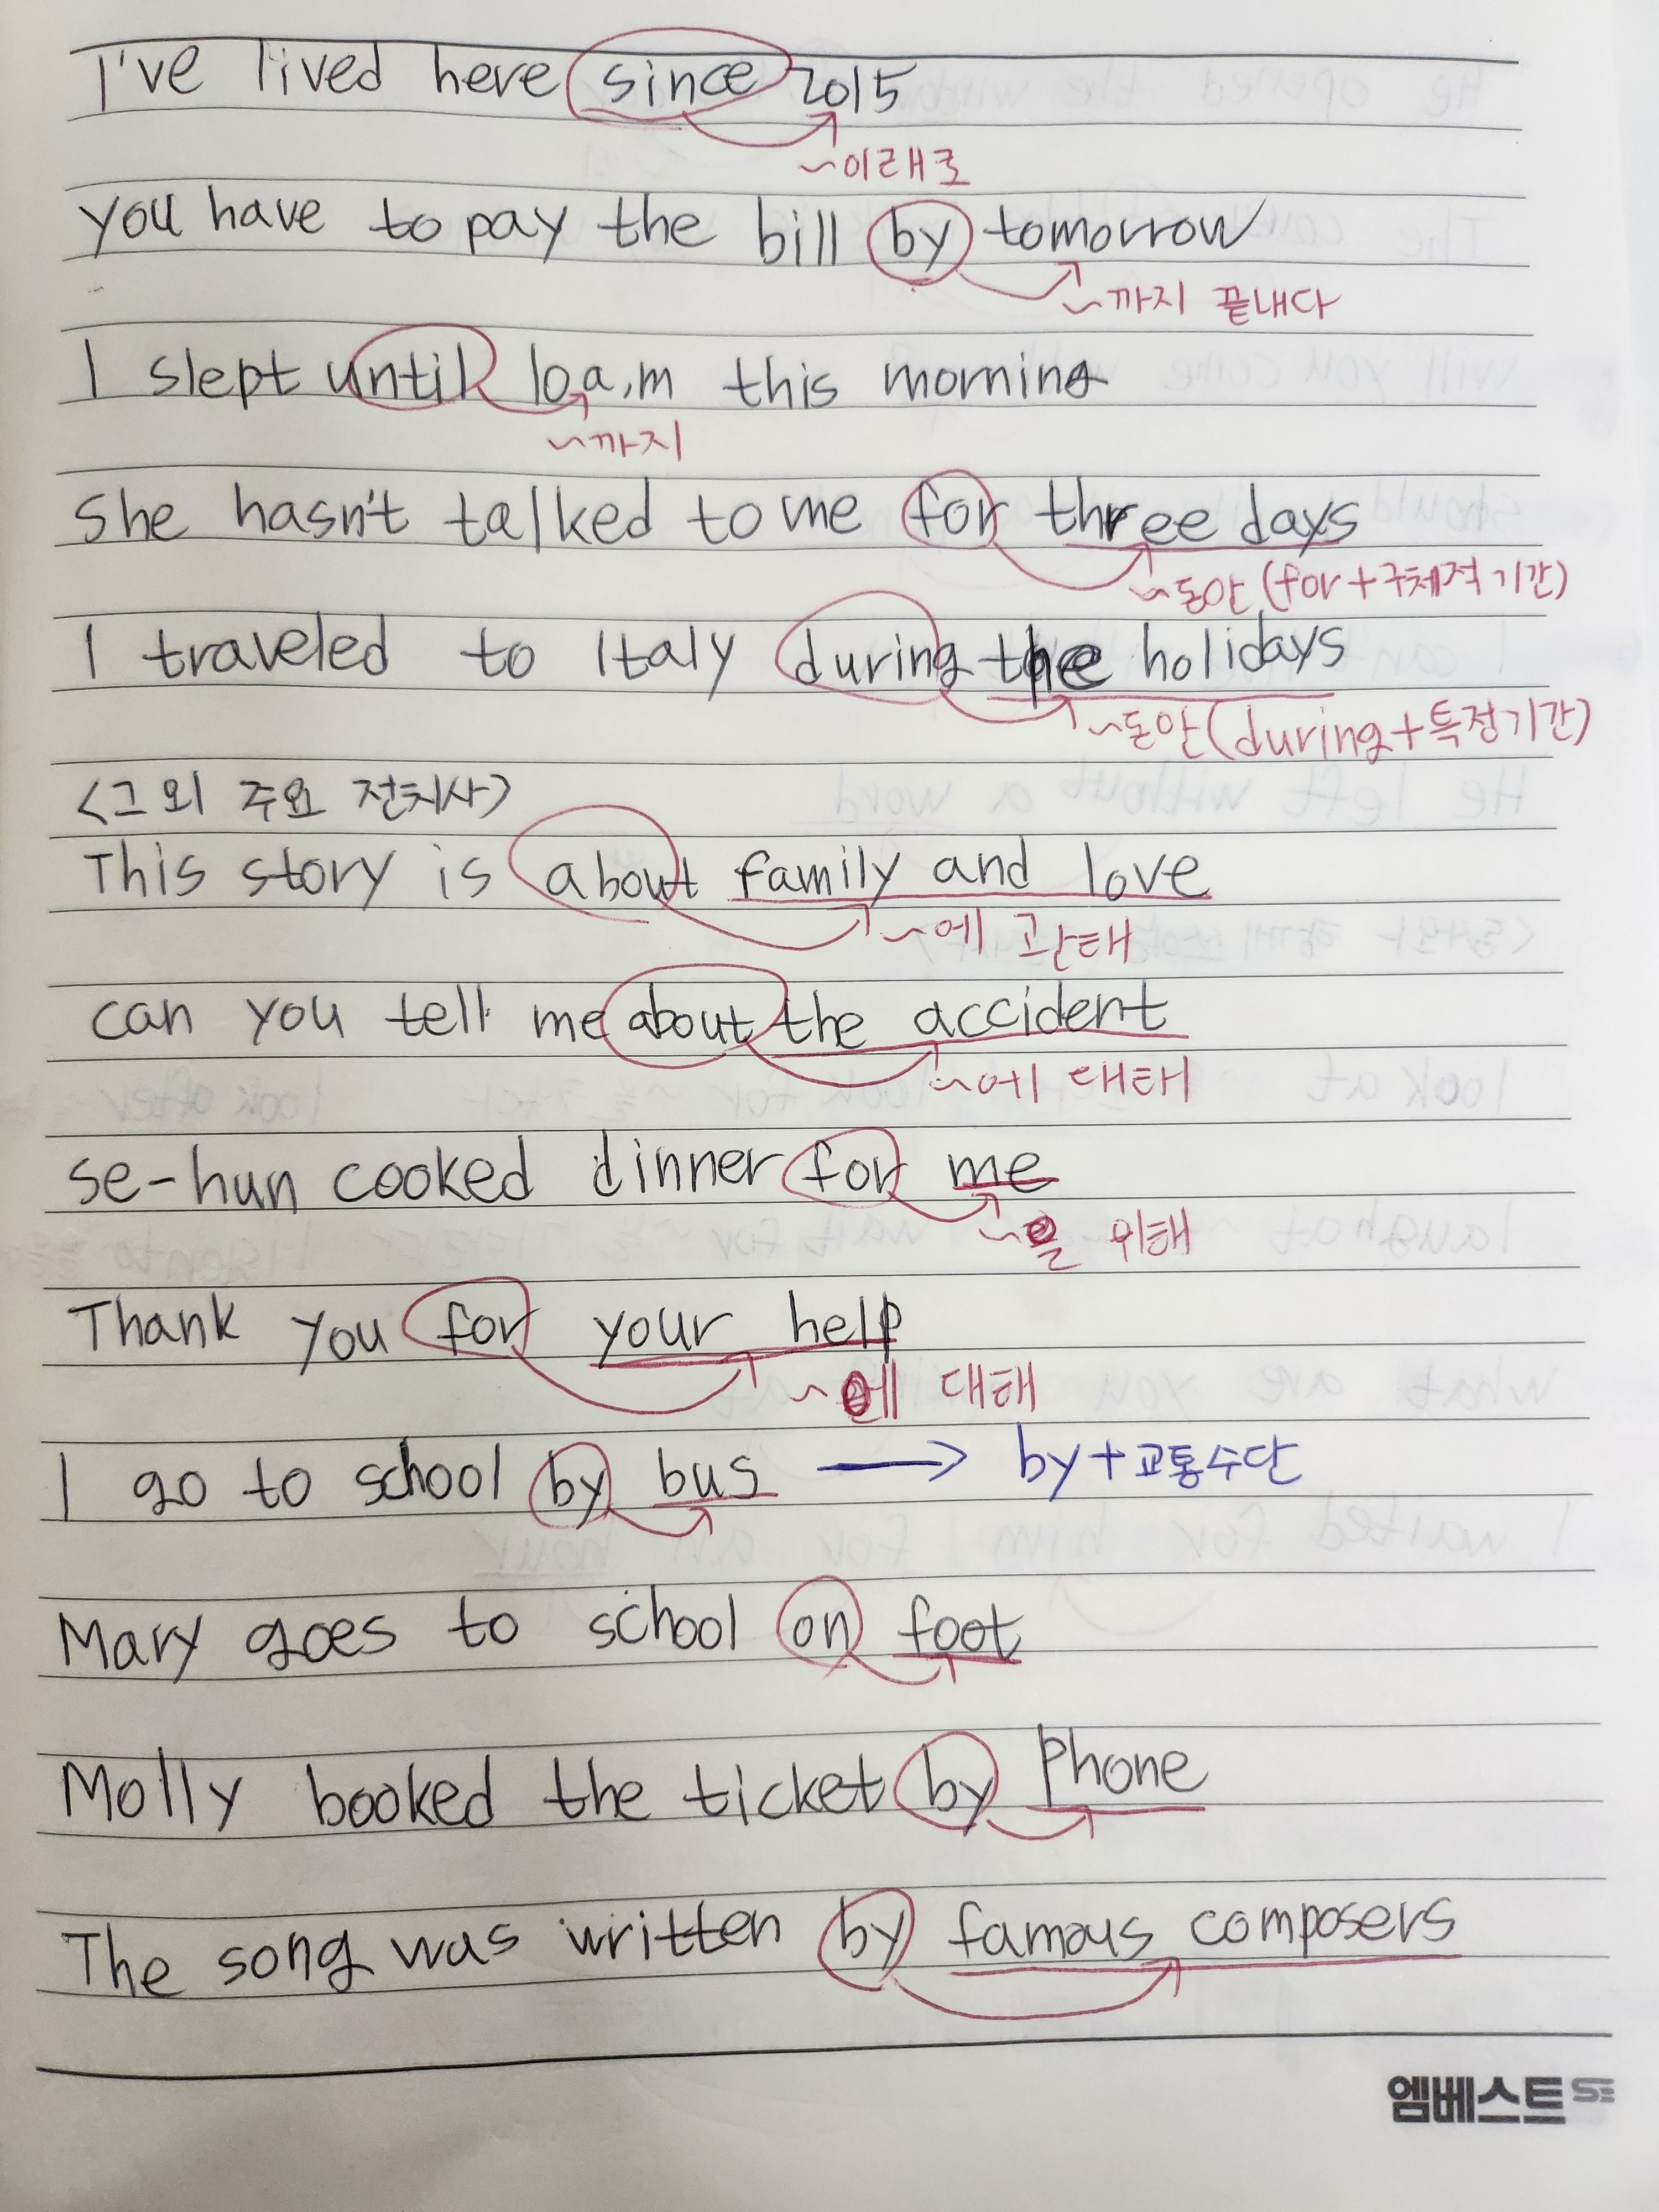 I've lived here since 2015
~이래로
you have to pay the bill by tomorrow
~까지 끝내다
I slept until 10a.m this morning
~까지
She hasn't talked to me for three days
~동안 (for+구체적 기간)
I traveled to Italy during the holidays
~동안(during+특정기간)
<그 외 주요 전치사>
This story is about family and love
~에 관해
can you tell me about the accident
~에 대해
se-hun cooked dinner for me
~을 위해
Thank you for your help
~에 대해
I go to school by bus → by+교통수단
Mary goes to school on foot
Molly booked the ticket by phone
The song was written by famous composers
엠베스트 SE